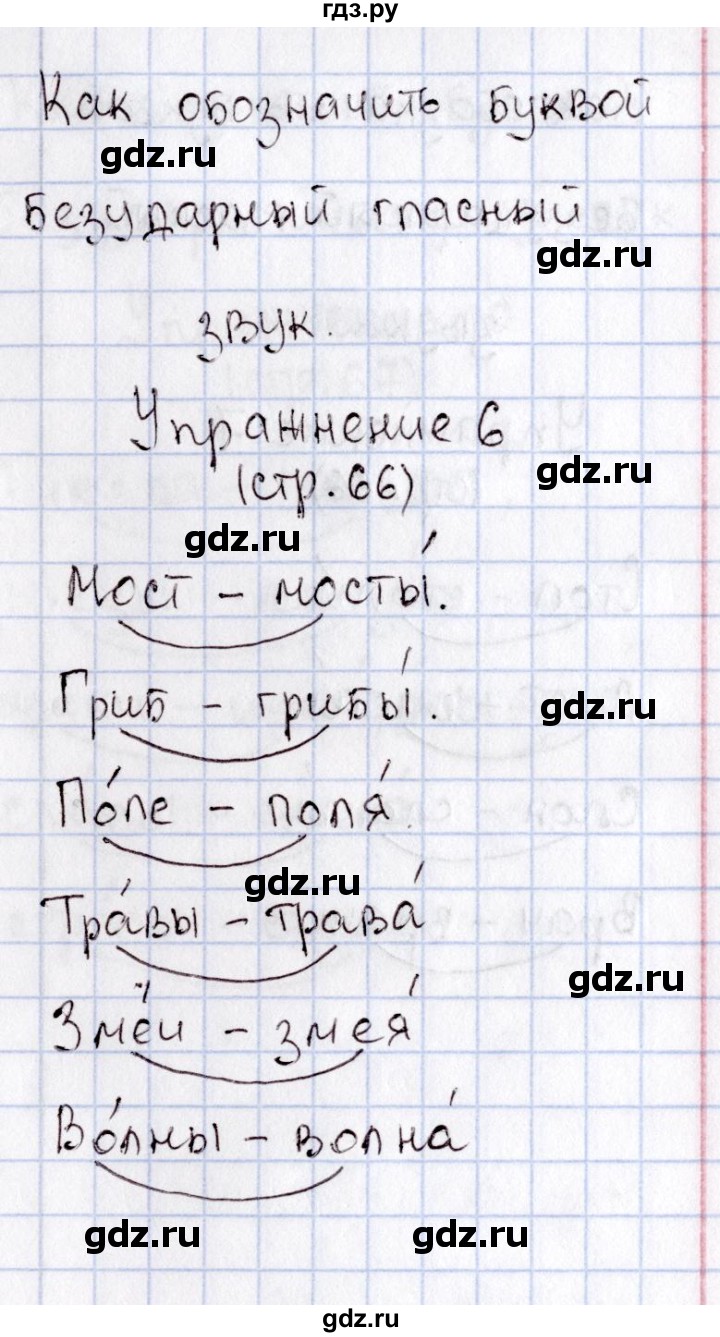 гдз.ру
Как обозначить буквой
gdz.ru
безударный гласный
gdz.ru
звук.
Упражнение 6
gdz.ru
(стр. 66)
gdz.ru
Мост - мосты́.
Гриб - грибы́.
gdz.ru
По́ле - поля́.
gdz.ru
Тра́вы - трава́
gdz.ru
Зме́и - змея́
Во́лны - волна́
gdz.ru
gdz.ru
gdz.ru